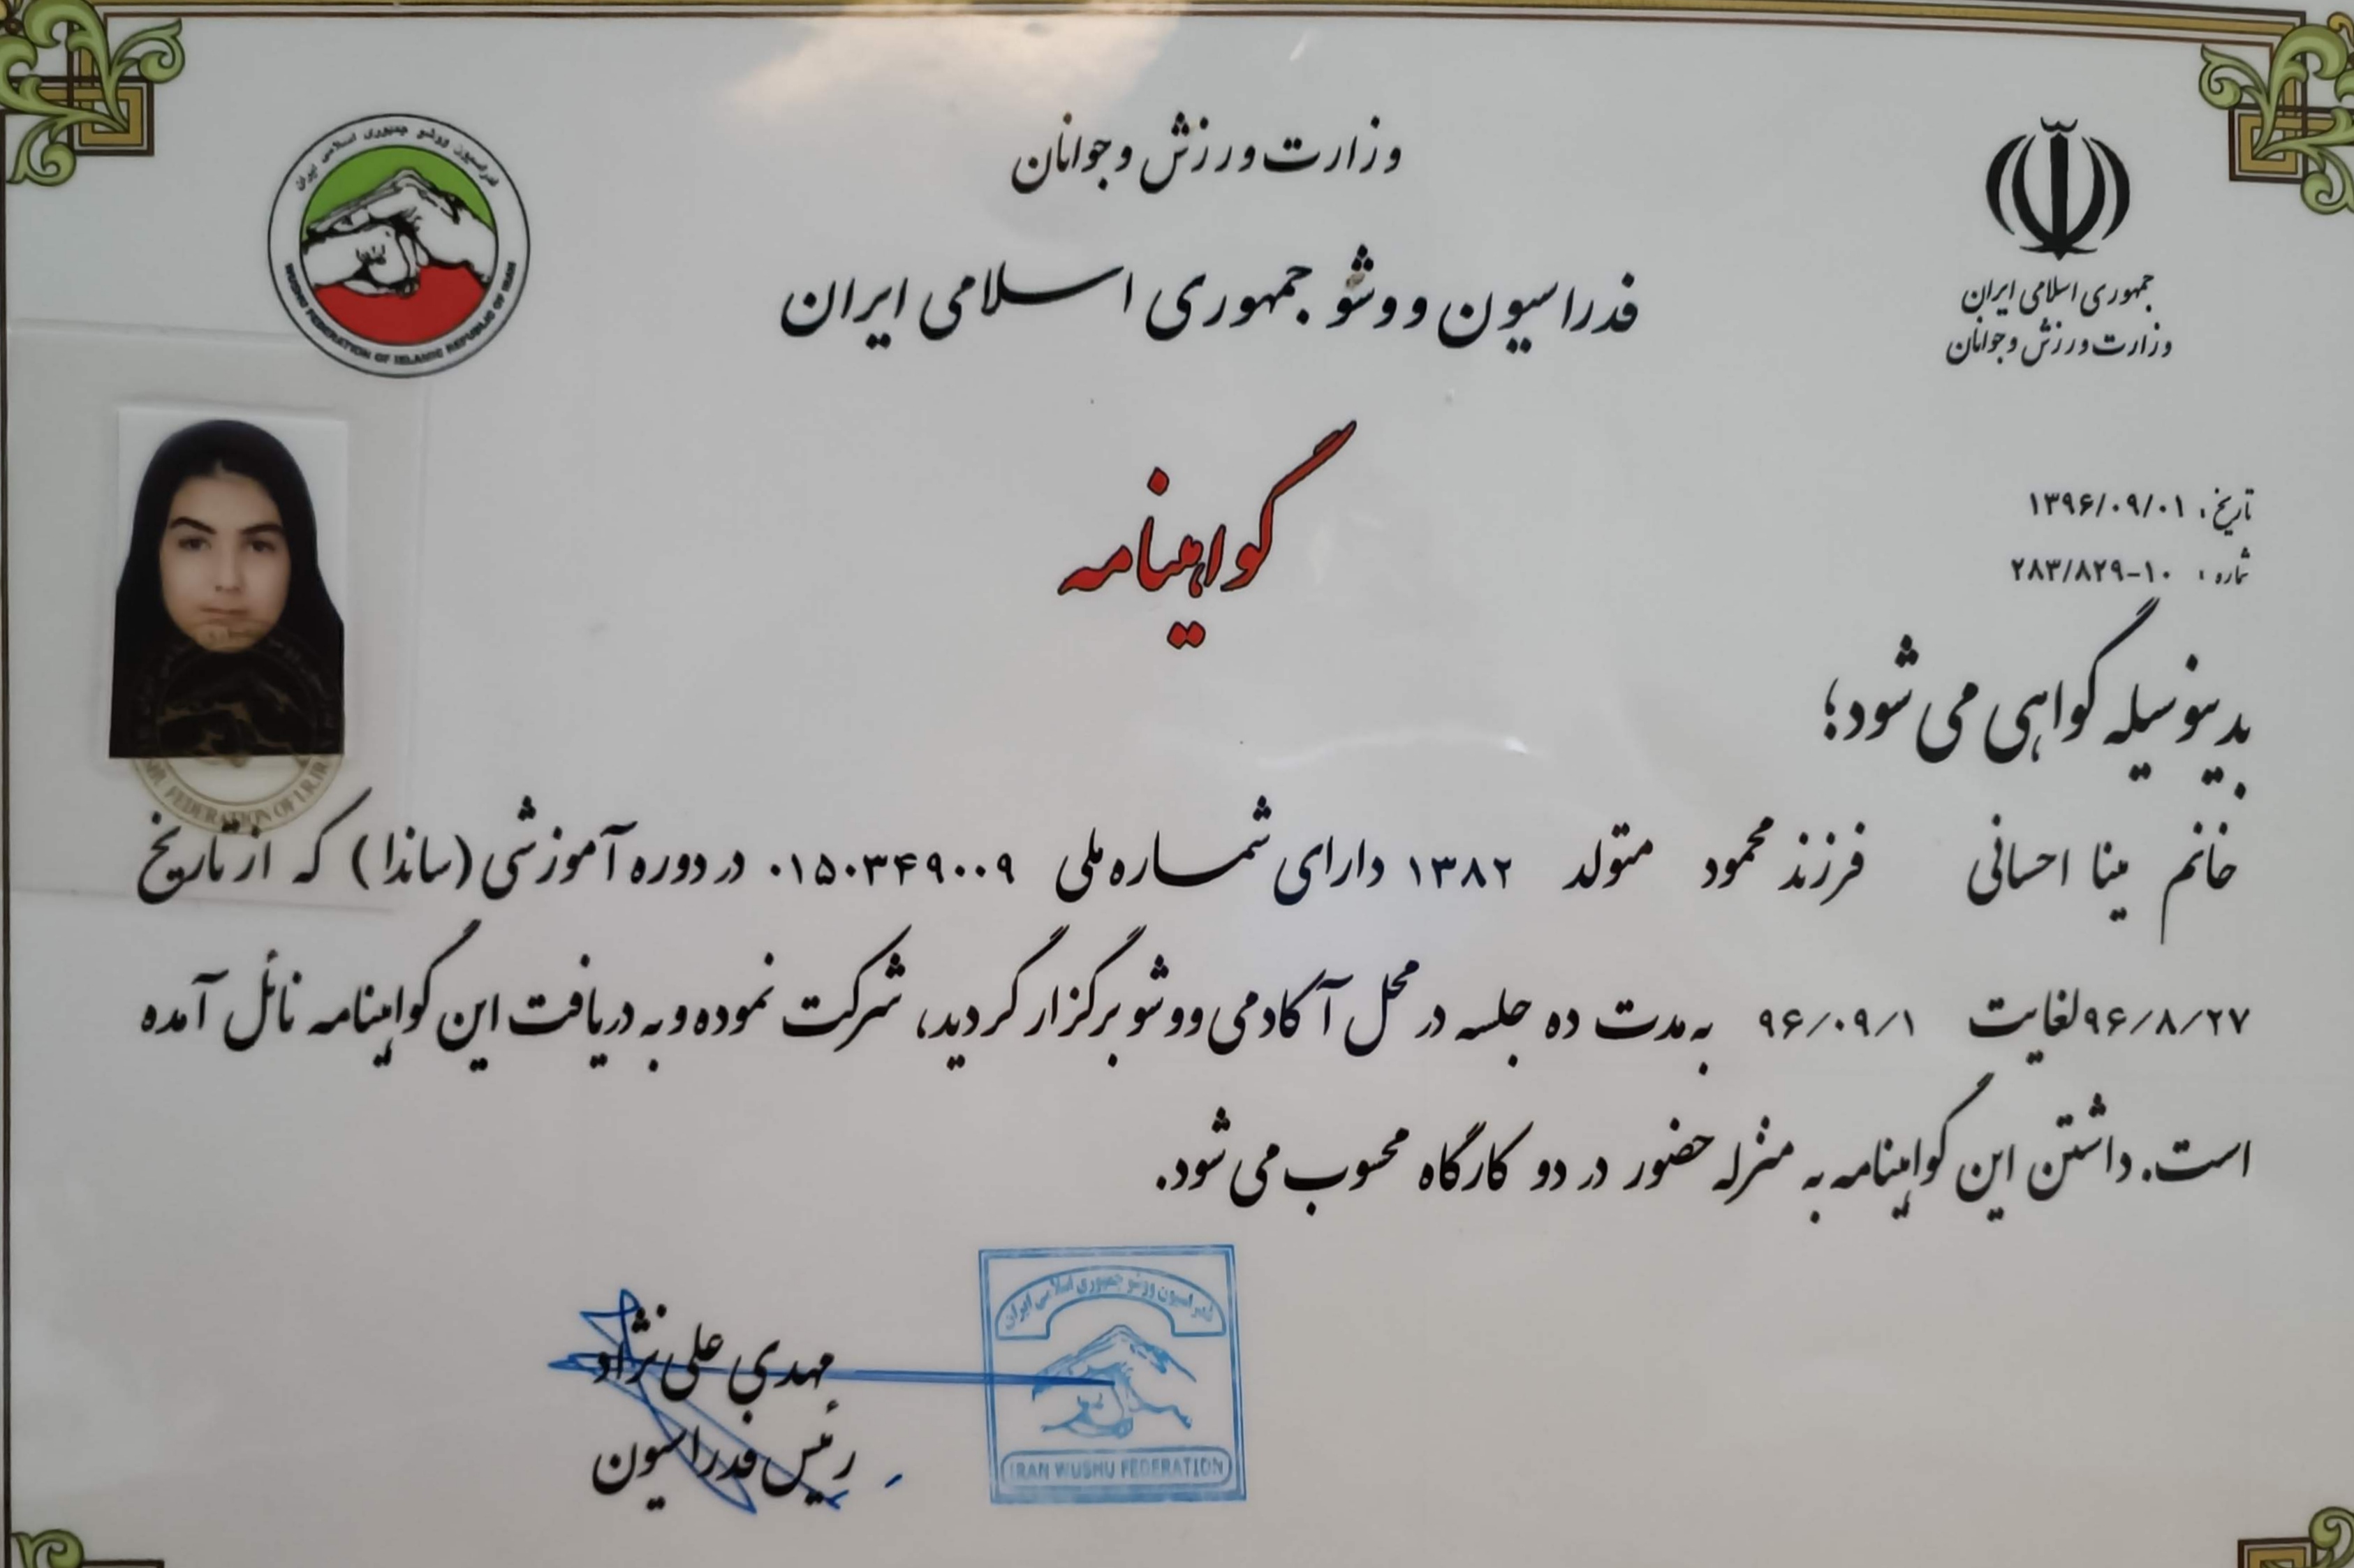 وزارت ورزش و جوانان
فدراسیون ووشو جمهوری اسلامی ایران
فدراسیون ووشو جمهوری اسلامی ایران
WUSHU FEDERATION OF ISLAMIC REPUBLIC OF IRAN
جمهوری اسلامی ایران
وزارت ورزش و جوانان
گواهینامه
تاریخ: ۱۳۹۶/۰۹/۰۱
شماره: ۲۸۳/۸۲۹-۱۰
بدینوسیله گواهی می شود؛
FEDERATION OF I.R.IRAN
خانم مینا احسانی فرزند محمود متولد ۱۳۸۲ دارای شماره ملی ۰۱۵۰۳۴۹۰۰۹ در دوره آموزشی (ساندا) که از تاریخ
۹۶/۸/۲۷ لغایت ۹۶/۰۹/۱ به مدت ده جلسه در محل آکادمی ووشو برگزار گردید، شرکت نموده و به دریافت این گواهینامه نائل آمده
است. داشتن این گواهینامه به منزله حضور در دو کارگاه محسوب می شود.
فدراسیون ووشو جمهوری اسلامی ایران
IRAN WUSHU FEDERATION
مهدی علی نژاد
رئیس فدراسیون